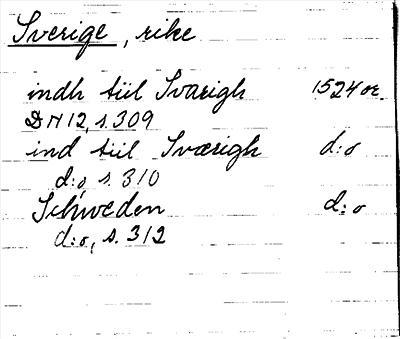 Sverige, rike
indh tiil Svarigh 1524 or.
DN 12, s. 309
ind tiil Sværigh d:o
d:o, s. 310
Schweden d:o
d:o, s. 312